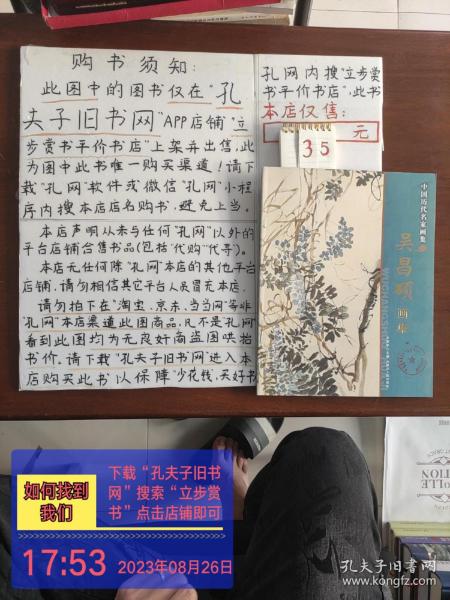 购书须知：
此图中的图书仅在“孔
夫子旧书网”APP店铺“立
步赏书平价书店”上架并出售，此
为图中此书唯一购买渠道！请下
载“孔网”软件或微信“孔网”小程
序内搜本店店名购书，避免上当。
本店声明从未与任何“孔网”以外的
平台店铺合售书品(包括“代购”“代寻)。
本店无任何除“孔网”本店的其他平台
店铺，请勿相信其它平台人员冒充本店。
请勿拍下在“淘宝、京东、当当网”等非
“孔网”本店渠道此图商品，凡不是孔网
看到此图均为无良奸商盗图哄抬
书价。请下载“孔夫子旧书网”进入本
店购买此书以保障“少花钱，买好书
孔网内搜“立步赏
书平价书店”，此书
本店仅售：
35
元
中国历代名家画集
吴昌硕
画集
WUCHANGSHUO
如何找到
我们
下载“孔夫子旧书
网”搜索“立步赏
书”点击店铺即可
17:53
2023年08月26日
孔夫子旧书网
www.kongfz.com